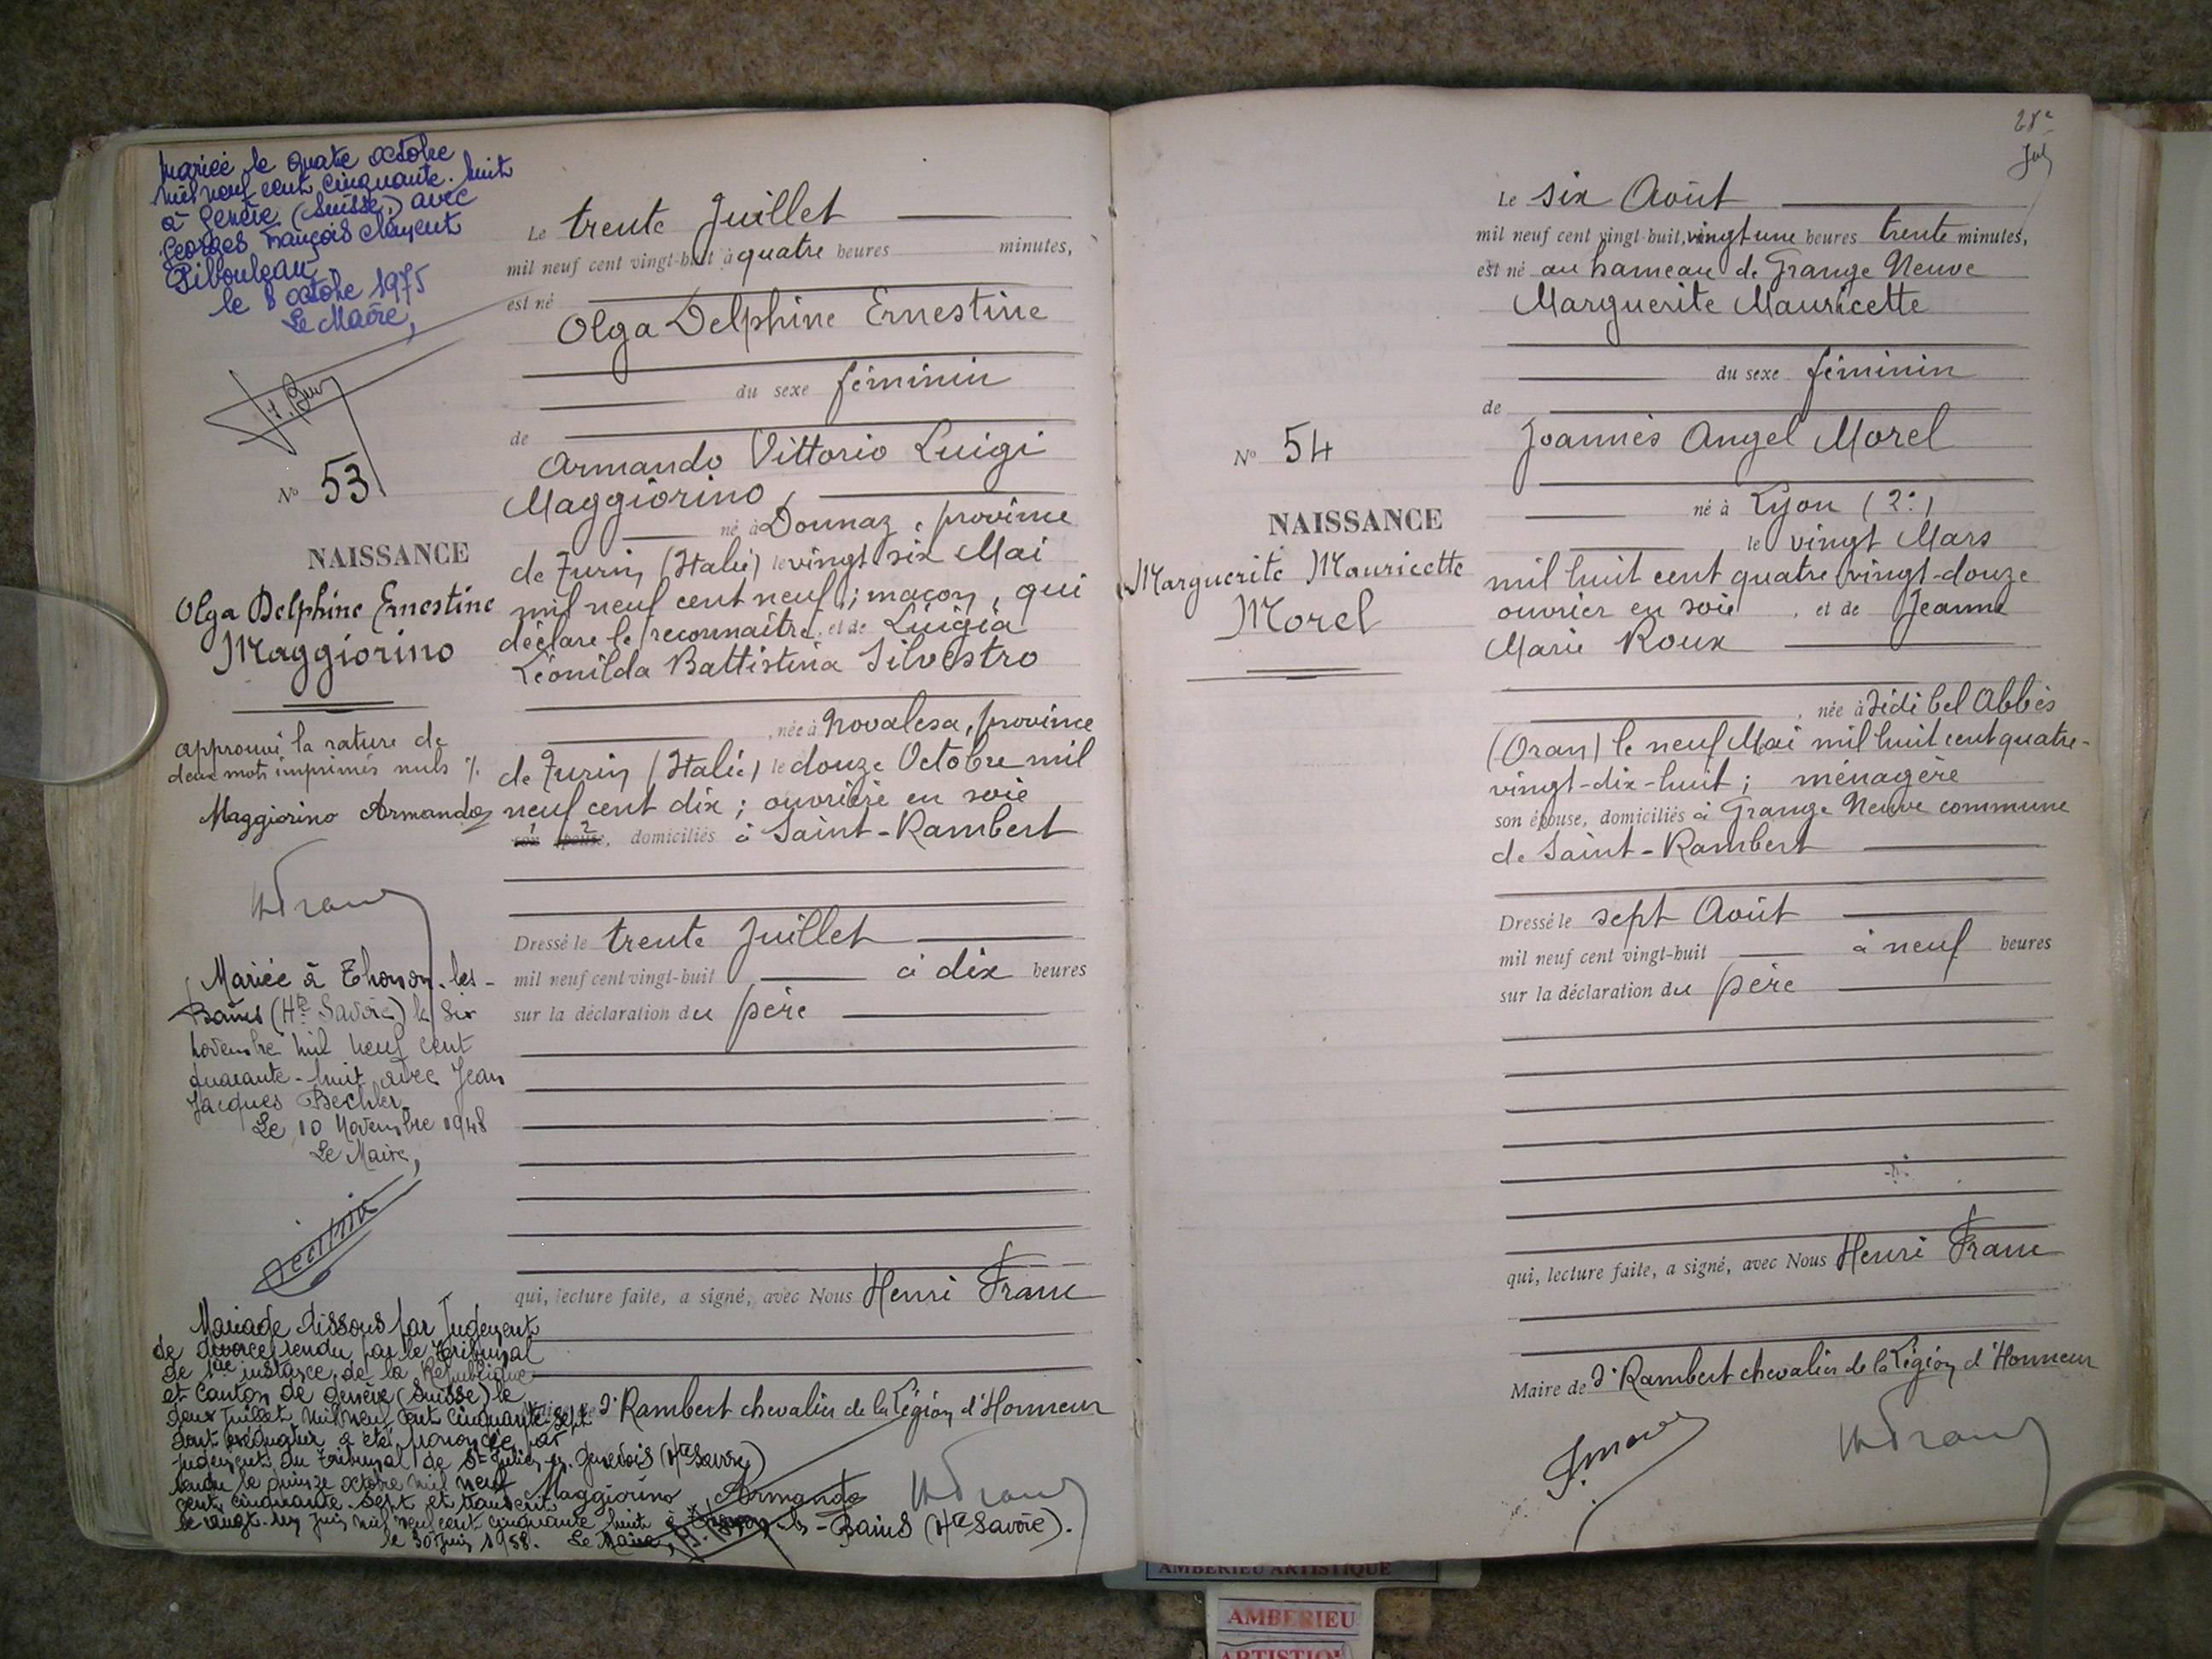 Mariée le quatre octobre
mil neuf cent cinquante-huit
à Genève (Suisse) avec
Georges François Clément
Pibouleau
le 8 octobre 1975
Le Maire,
N° 53
NAISSANCE
Olga Delphine Ernestine
Maggiorino
approuvé la rature de
deux mots imprimés nuls
Maggiorino Armando
HFranc
Mariée à Thonon-les-
Bains (Hte Savoie) le six
novembre mil neuf cent
quarante-huit avec Jean
Jacques Bechler
Le 10 Novembre 1948
Le Maire,
Mariage dissous par Jugement
de divorce rendu par le Tribunal
de 1ère instance de la République
et Canton de Genève (Suisse) le
deux Juillet mil neuf cent cinquante-sept
dont exequatur a été prononcée par
jugement du Tribunal de St Julien en Genevois (Hte Savoie)
rendu le quinze octobre mil neuf
cent cinquante-sept et transcrit
le vingt-un Juin mil neuf cent cinquante huit à Thonon-les-Bains (Hte Savoie).
le 30 Juin 1958. Le Maire,
Le trente Juillet
mil neuf cent vingt-huit à quatre heures minutes,
est né
Olga Delphine Ernestine
du sexe féminin
de
Armando Vittorio Luigi
Maggiorino,
né à Donnaz, province
de Turin (Italie) le vingt six Mai
mil neuf cent neuf; maçon, qui
déclare le reconnaître, et de Luigia
Léonilda Battistina Silvestro
, née à Novalesa, province
de Turin (Italie) le douze Octobre mil
neuf cent dix; ouvrière en soie
son 1 épouse 2, domiciliés à Saint-Rambert
Dressé le trente Juillet
mil neuf cent vingt-huit à dix heures
sur la déclaration du père
qui, lecture faite, a signé, avec Nous Henri Franc
Maire de St Rambert chevalier de la Légion d'Honneur
Maggiorino Armando
HFranc
28e
Le six Août
mil neuf cent vingt-huit, vingt une heures trente minutes,
est né au hameau de Grange Neuve
Marguerite Mauricette
du sexe féminin
de
Joannès Angel Morel
N° 54
NAISSANCE
Marguerite Mauricette
Morel
né à Lyon (2e)
le vingt Mars
mil huit cent quatre vingt-douze
ouvrier en soie, et de Jeanne
Marie Roux
, née à Sidi bel Abbès
(Oran) le neuf Mai mil huit cent quatre-
vingt-dix-huit; ménagère
son épouse, domiciliés à Grange Neuve commune
de Saint-Rambert
Dressé le sept Août
mil neuf cent vingt-huit à neuf heures
sur la déclaration du père
qui, lecture faite, a signé, avec Nous Henri Franc
Maire de St Rambert chevalier de la Légion d'Honneur
HFranc
AMBERIEU ARTISTIQUE
AMBERIEU